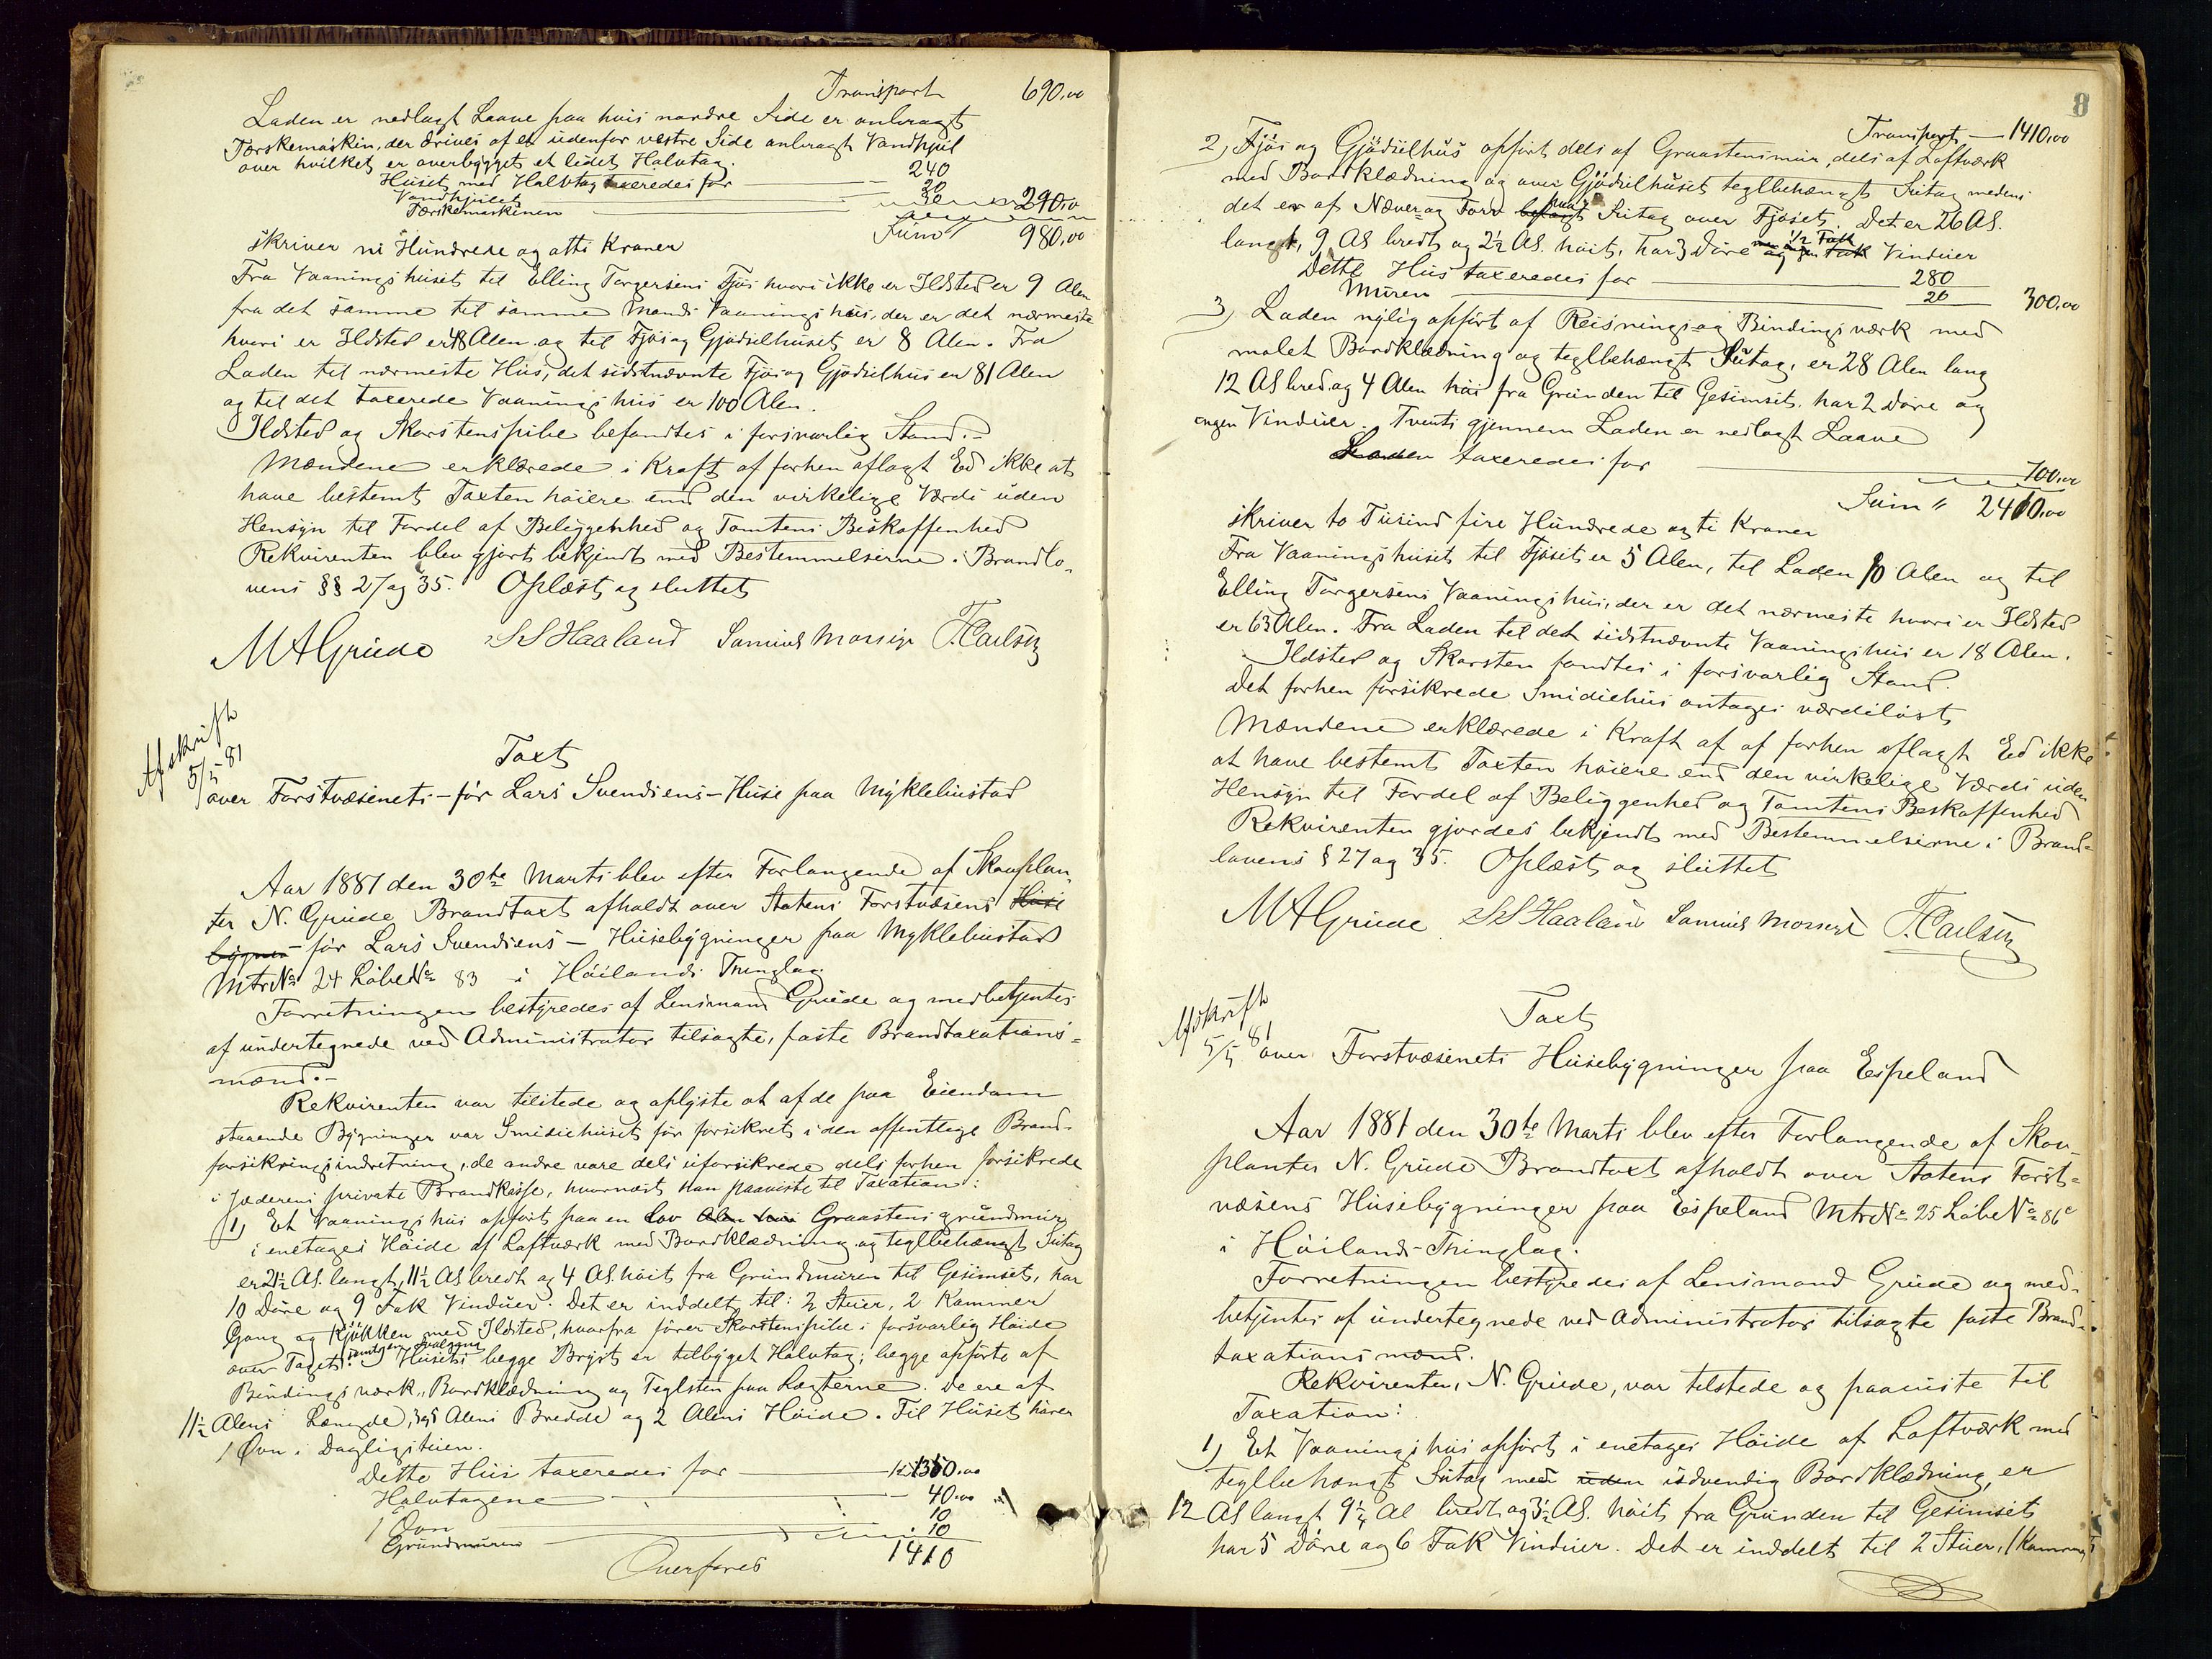 Transport 690,00
Laden er nedlagt Laave paa hvis nordre Side er anbragt
Tærskemaskin, der drives af et udenfor vestre Side anbragt Vandhjul
over hvilket er overbygget et lidet Halvtag.
Huset med Halvtag taxeredes for 240
Vandhjulet 20
Tærskemaskinen 30 290,00
Sum 980,00
skriver ni Hundrede og otti Kroner
Fra Vaaningshuset til Elling Torgersens Fjøs hvori ikke er Ildsted er 9 Alen
fra det samme til samme Mands Vaaningshus, der er det nærmeste
hvori er Ildsted er 48 Alen og til Fjøs og Gjødselhuset er 8 Alen. Fra
Laden til nærmeste Hus, det sidstnævnte Fjøs og Gjødselhus er 81 Alen
og til det taxerede Vaaningshus er 100 Alen.
Ildsted og Skorstenspibe befandtes i forsvarlig Stand.-
Mændene erklærede i Kraft af forhen aflagt Ed ikke at
have bestemt Taxten høiere end den virkelige Værdi uden
Hensyn til Fordel af Beliggenhed og Tomtens Beskaffenhed
Rekvirenten blev gjort bekjendt med Bestemmelserne i Brandlo-
vens §§ 27 og 35. Oplæst og sluttet
MAGrude SS Haaland Samuel Monsige T. Carlsen
Afskrift
5/5 81
Taxt
over Forstvæsenets - før Lars Svendsens - Huse paa Myklebustad
Aar 1881 den 30te Marts blev efter Forlangende af Skovplan-
ter N. Grude Brandtaxt afholdt over Statens Forstvæsens Huse
bygnin - før Lars Svendsens - Husebygninger paa Myklebustad
Mtr No 24 Løbe No 83 i Høilands Thinglag.
Forretningen bestyredes af Lensmand Grude og medbetjentes
af undertegnede ved Administrator tilsagte, faste Brandtaxations-
mænd.-
Rekvirenten var tilstede og oplyste at af de paa Eiendom
staaende Bygninger var Smidiehuset før forsikret i den offentlige Brand-
forsikringsindretning, de andre vare dels uforsikrede dels forhen forsikrede
i Jæderens private Brandkasse, hvornæst han paaviste til Taxation:
1) Et Vaaningshus opført paa en lav Alen høi Graastensgrundmur
i enetages Høide af Loftværk med Bordklædning og teglbehængt Sutag
er 21½ Al. langt, 11½ Al bredt og 4 Al. høit fra Grundmuren til Gesimset, har
10 Døre og 9 Fak Vinduer. Det er inddelt til: 2 Stuer, 2 Kammer
Gang og Kjøkken med Ildsted, hvorfra fører Skorstenspibe i forsvarlig Høide
over Taget. Husets begge Bryst er tilbyget Halvtag; begge opførte af
Bindingsværk, Bordklædning og Teglsten paa Lægterne. De ere af
11½ Alens Længde, 3 og 5 Alens Bredde og 2 Alens Høide. Til Huset hører
1 Ovn i Dagligstuen.
Dette Hus taxeredes for 1350,00
Halvtagene 40,00
1 Ovn 10
Grundmuren 10
1410
Overføres
8
Transport 1410,00
2) Fjøs og Gjødselhus opført dels af Graastensmur, dels af Loftværk
med Bordklædning og over Gjødselhuset teglbehængt Sutag medens
det er af Næver og Torv belagt Sutag over Fjøset. Det er 26 Al.
langt, 9 Al bredt og 2½ Al. høit, har 3 Døre og ½ Fak Vinduer
Dette Hus taxeredes for 280
Muren 20 300,00
3) Laden nylig opført af Reisnings- og Bindingsværk med
malet Bordklædning og teglbehængt Sutag, er 28 Alen lang
12 Al bred og 4 Alen høi fra Grunden til Gesimset. har 2 Døre og
ingen Vinduer. Tverts gjennem Laden er nedlagt Laave
Laden taxeredes for 700,00
Sum " 2410,00
skriver to Tusind fire Hundrede og ti Kroner
Fra Vaaningshuset til Fjøset er 5 Alen, til Laden 10 Alen og til
Elling Torgersens Vaaningshus, der er det nærmeste hvori er Ildsted
er 63 Alen. Fra Laden til det sidstnævnte Vaaningshus er 18 Alen.
Ildsted og Skorsten fandtes i forsvarlig Stand.
Det forhen forsikrede Smidiehus antages værdiløst
Mændene erklærede i Kraft af af forhen aflagt Ed ikke
at have bestemt Taxten høiere end den virkelige Værdi uden
Hensyn til Fordel af Beliggenhed og Tomtens Beskaffenhed
Rekvirenten gjordes bekjendt med Bestemmelserne i Brand-
lovens § 27 og 35. Oplæst og sluttet
MAGrude SS Haaland Samuel Monsige T. Carlsen
Afskrift
5/5 81
Taxt
over Forstvæsenets Husebygninger paa Espeland
Aar 1881 den 30te Marts blev efter Forlangende af Skov-
planter N. Grude Brandtaxt afholdt over Statens Forst-
væsens Husebygninger paa Espeland Mtr No 25 Løbe No 86c
i Høilands Thinglag.
Forretningen bestyredes af Lensmand Grude og med-
betjentes af undertegnede ved Administrator tilsagte faste Brand-
taxationsmænd.
Rekvirenten, N. Grude, var tilstede og paaviste til
Taxation:
1) Et Vaaningshus opført i enetages Høide af Loftværk med
teglbehængt Sutag med uden udvendig Bordklædning, er
12 Al langt 9¼ Al bredt og 3½ Al. høit fra Grunden til Gesimset
har 5 Døre og 6 Fak Vinduer. Det er inddelt til 2 Stuer, 1 Kammer